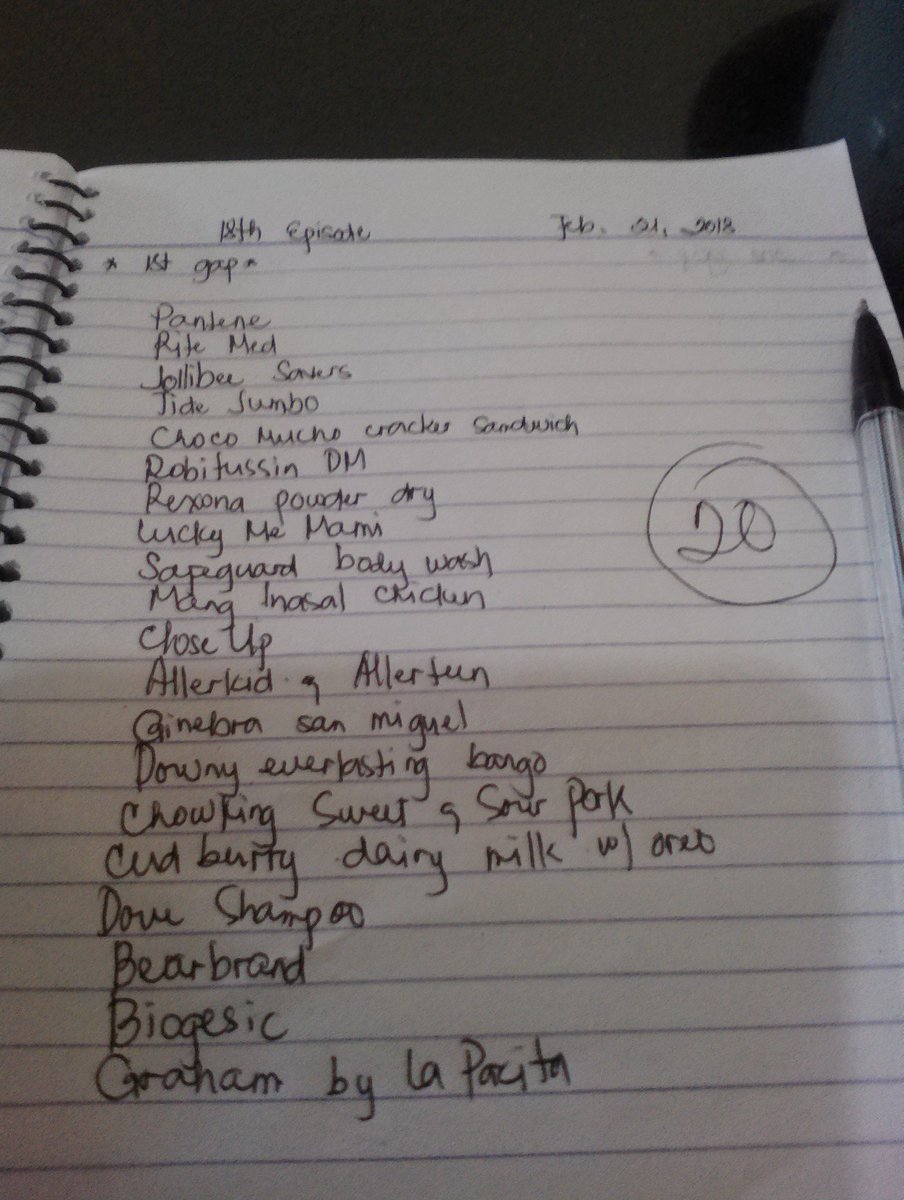 18th Episode Feb. 21, 2013
* 1st gap *
Pantene
Rite Med
Jollibee Savers
Tide Jumbo
Choco Mucho cracker sandwich
Robitussin DM
Rexona powder dry
Lucky Me Mami
Safeguard body wash
Mang Inasal chicken
Close Up
20
Allerkid & Allerteen
Ginebra san miguel
Downy everlasting bango
Chowking Sweet & Sour Pork
Cudburry dairy milk w/ oreo
Dove Shampoo
Bearbrand
Biogesic
Graham by la Pacita